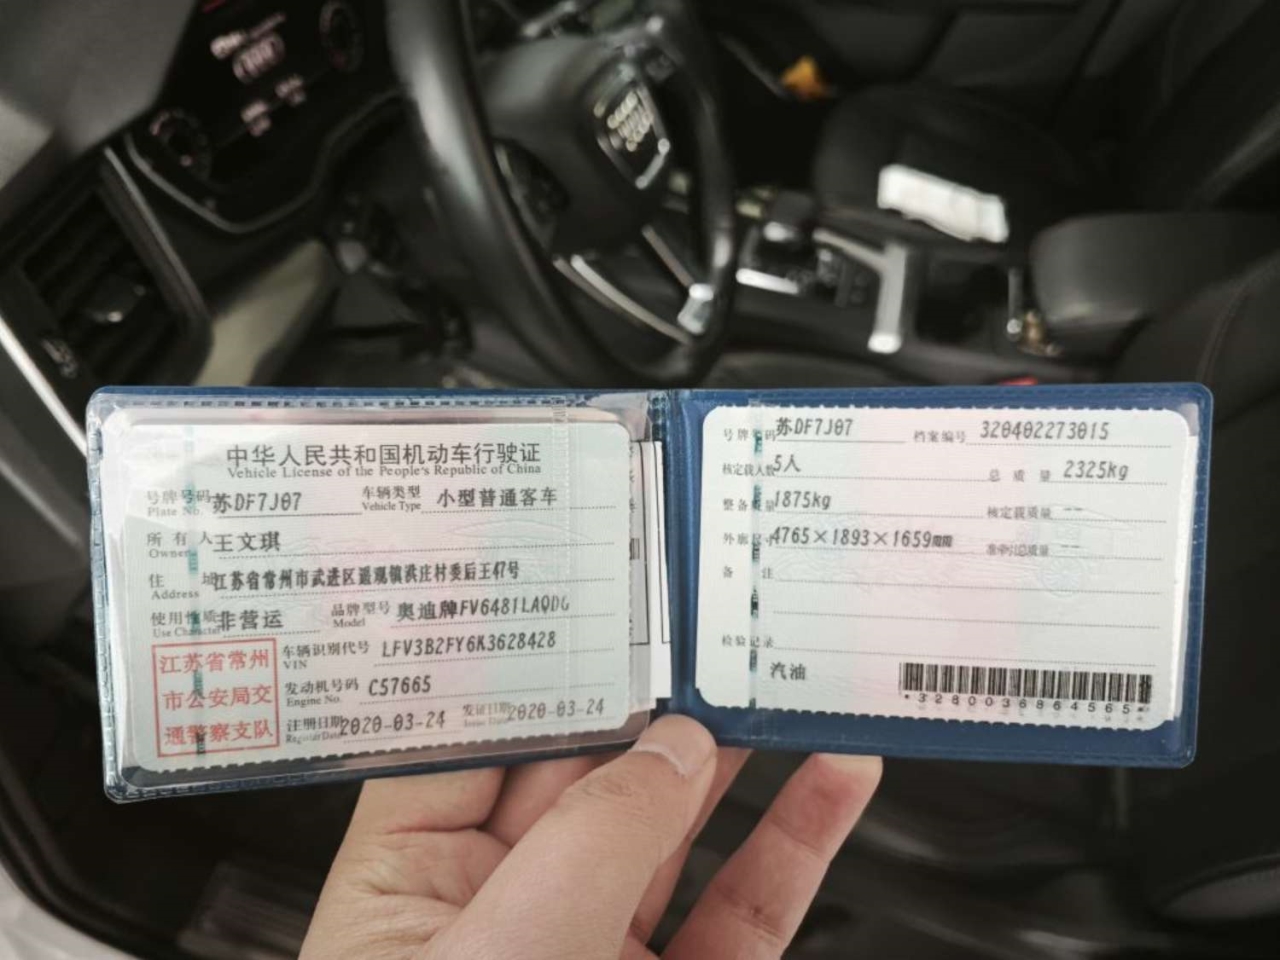 中华人民共和国机动车行驶证
Vehicle License of the People's Republic of China
号牌号码 苏DF7J07 车辆类型 小型普通客车
Plate No. Vehicle Type
所有人 王文琪
Owner
住址 江苏省常州市武进区遥观镇洪庄村委后王47号
Address
使用性质 非营运 品牌型号 奥迪牌FV6481LAQDG
Use Character Model
车辆识别代号 LFV3B2FY6K3628428
VIN
发动机号码 C57665
Engine No.
注册日期 2020-03-24 发证日期 2020-03-24
Register Date Issue Date
江苏省常州
市公安局交
通警察支队
号牌号码 苏DF7J07 档案编号 320402273015
核定载人数 5人 总质量 2325kg
整备质量 1875kg 核定载质量 --
外廓尺寸 4765×1893×1659mm 准牵引总质量 --
备注
检验记录
汽油
*3280036864565*